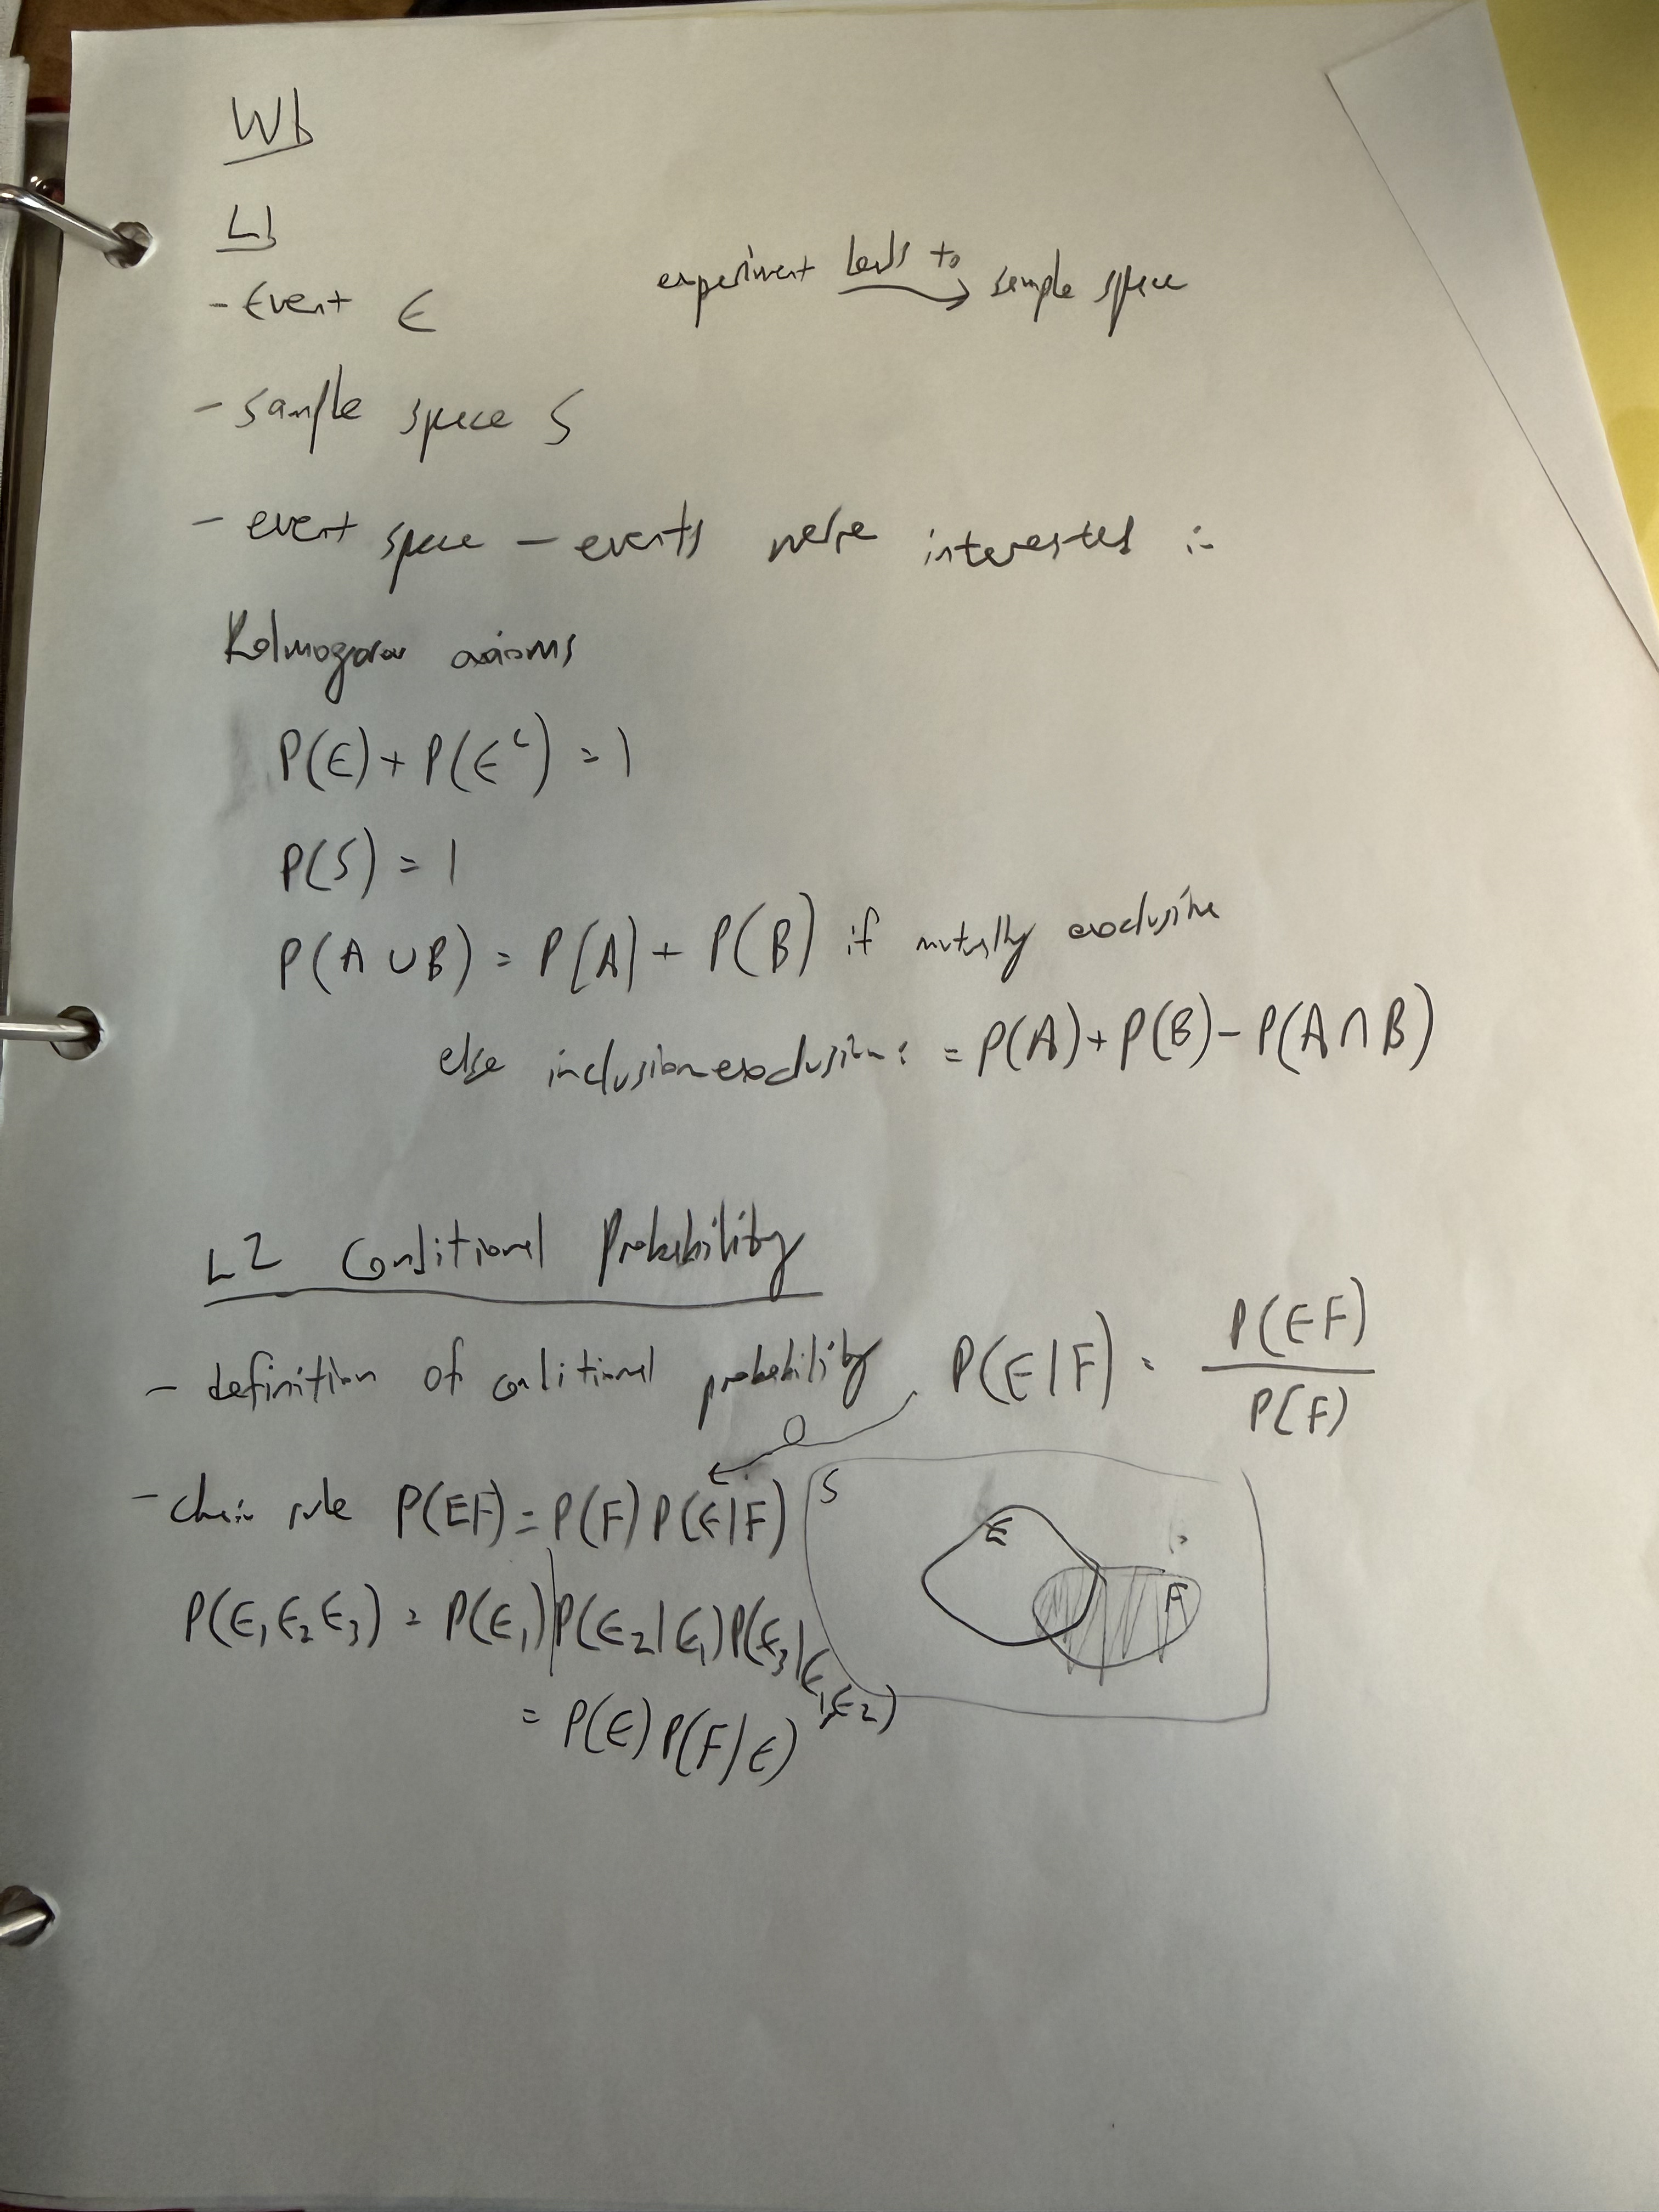 W1
L1
- Event E
experiment leads to sample space
- sample space S
- event space - events we're interested in
Kolmogorov axioms
P(E) + P(E^c) = 1
P(S) = 1
P(A ∪ B) = P(A) + P(B) if mutually exclusive
else inclusion-exclusion: = P(A) + P(B) - P(A ∩ B)
L2 Conditional Probability
- definition of conditional probability P(E|F) = P(EF) / P(F)
- chain rule P(EF) = P(F) P(E|F)
S
E
F
P(E₁E₂E₃) = P(E₁) P(E₂|E₁) P(E₃|E₁E₂)
= P(E) P(F|E)